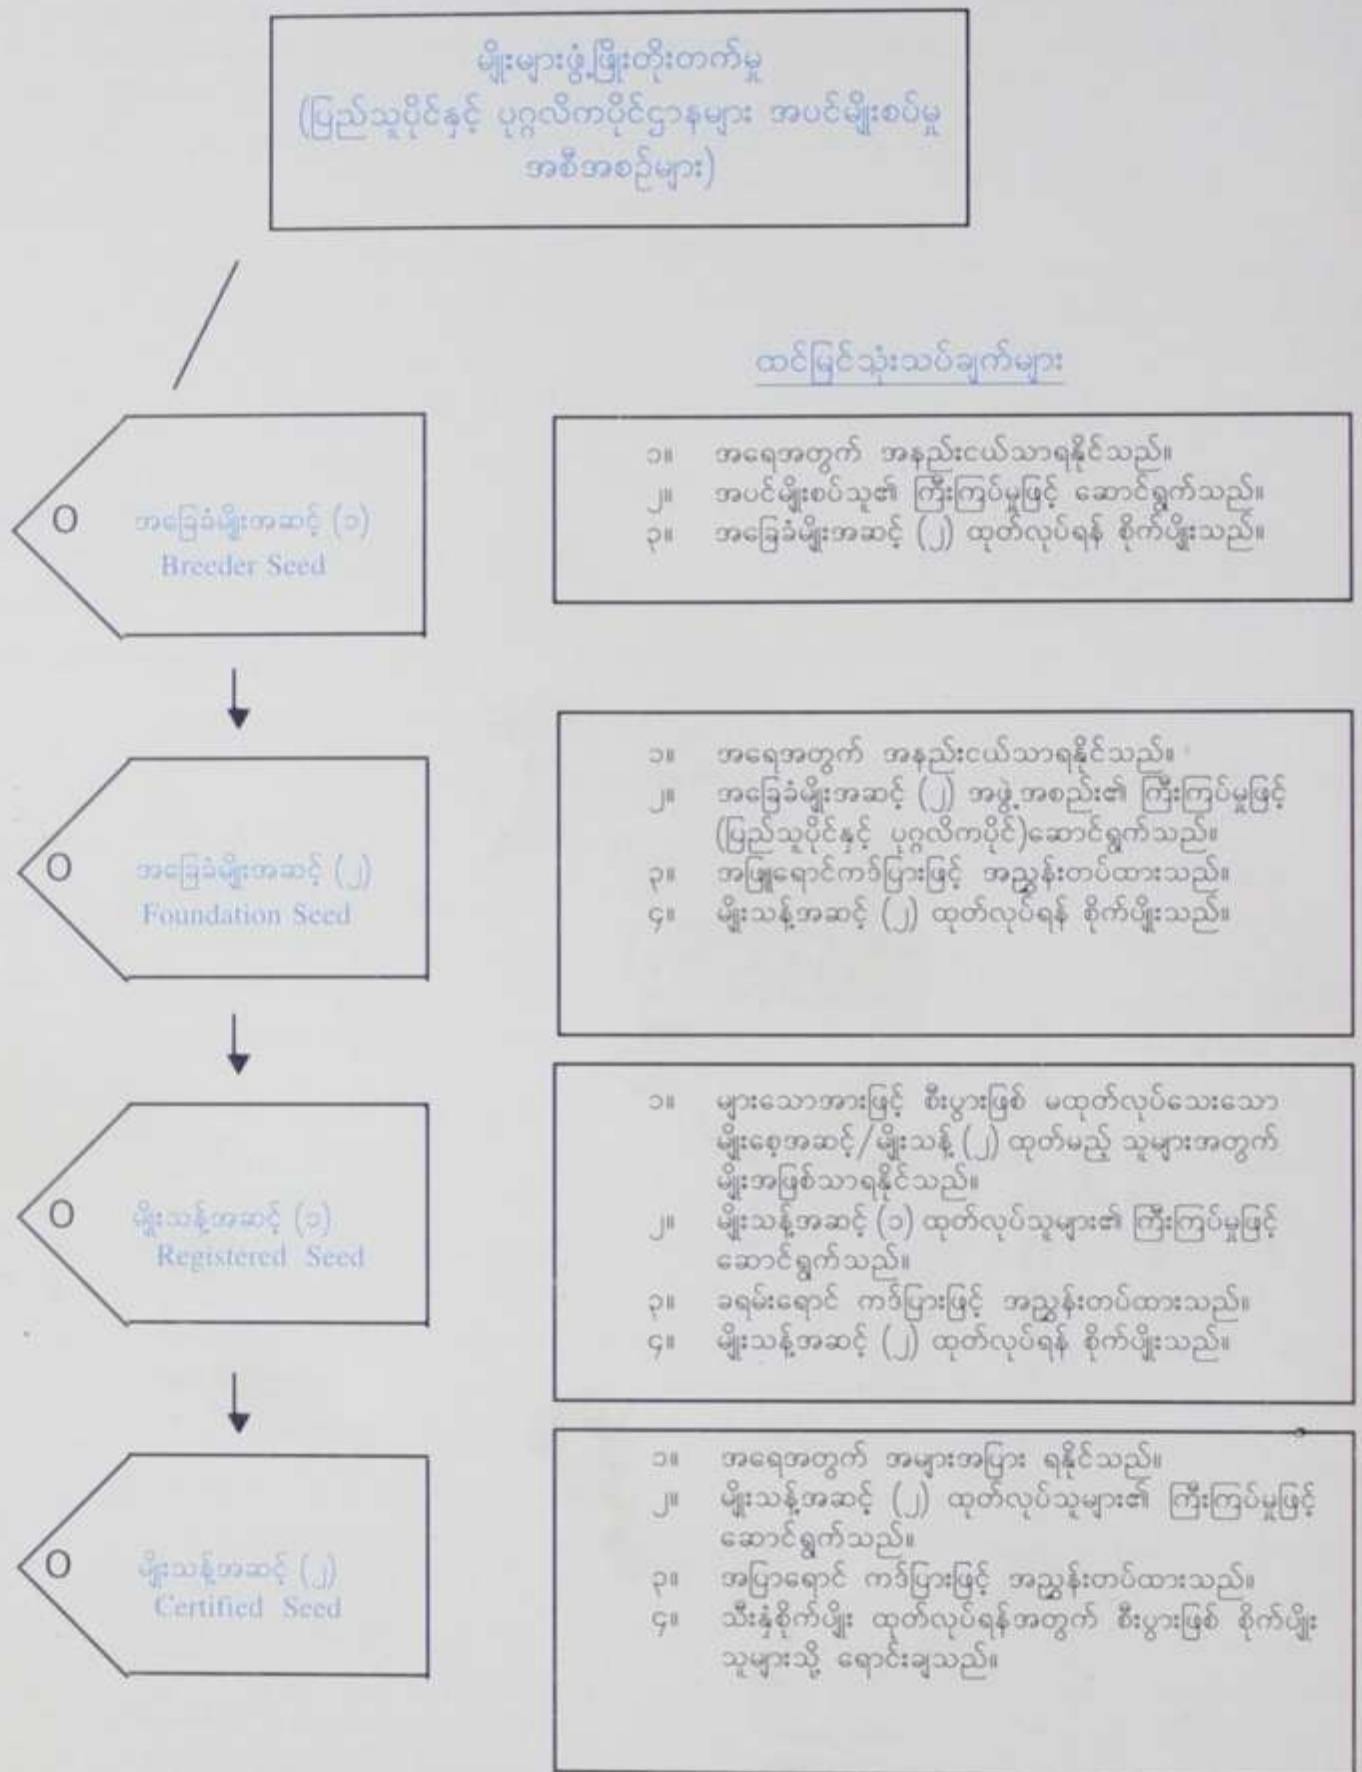 မျိုးများဖွံ့ဖြိုးတိုးတက်မှု
(ပြည်သူပိုင်နှင့် ပုဂ္ဂလိကပိုင်ဌာနများ အပင်မျိုးစပ်မှု
အစီအစဉ်များ)
ထင်မြင်သုံးသပ်ချက်များ
O အခြေခံမျိုးအဆင့် (၁)
Breeder Seed
၁။ အရေအတွက် အနည်းငယ်သာရနိုင်သည်။
၂။ အပင်မျိုးစပ်သူ၏ ကြီးကြပ်မှုဖြင့် ဆောင်ရွက်သည်။
၃။ အခြေခံမျိုးအဆင့် (၂) ထုတ်လုပ်ရန် စိုက်ပျိုးသည်။
O အခြေခံမျိုးအဆင့် (၂)
Foundation Seed
၁။ အရေအတွက် အနည်းငယ်သာရနိုင်သည်။
၂။ အခြေခံမျိုးအဆင့် (၂) အဖွဲ့အစည်း၏ ကြီးကြပ်မှုဖြင့်
(ပြည်သူပိုင်နှင့် ပုဂ္ဂလိကပိုင်)ဆောင်ရွက်သည်။
၃။ အဖြူရောင်ကဒ်ပြားဖြင့် အညွှန်းတပ်ထားသည်။
၄။ မျိုးသန့်အဆင့် (၂) ထုတ်လုပ်ရန် စိုက်ပျိုးသည်။
O မျိုးသန့်အဆင့် (၁)
Registered Seed
၁။ များသောအားဖြင့် စီးပွားဖြစ် မထုတ်လုပ်သေးသော
မျိုးစေ့အဆင့်/မျိုးသန့် (၂) ထုတ်မည့် သူများအတွက်
မျိုးအဖြစ်သာရနိုင်သည်။
၂။ မျိုးသန့်အဆင့် (၁) ထုတ်လုပ်သူများ၏ ကြီးကြပ်မှုဖြင့်
ဆောင်ရွက်သည်။
၃။ ခရမ်းရောင် ကဒ်ပြားဖြင့် အညွှန်းတပ်ထားသည်။
၄။ မျိုးသန့်အဆင့် (၂) ထုတ်လုပ်ရန် စိုက်ပျိုးသည်။
O မျိုးသန့်အဆင့် (၂)
Certified Seed
၁။ အရေအတွက် အများအပြား ရနိုင်သည်။
၂။ မျိုးသန့်အဆင့် (၂) ထုတ်လုပ်သူများ၏ ကြီးကြပ်မှုဖြင့်
ဆောင်ရွက်သည်။
၃။ အပြာရောင် ကဒ်ပြားဖြင့် အညွှန်းတပ်ထားသည်။
၄။ သီးနှံစိုက်ပျိုး ထုတ်လုပ်ရန်အတွက် စီးပွားဖြစ် စိုက်ပျိုး
သူများသို့ ရောင်းချသည်။